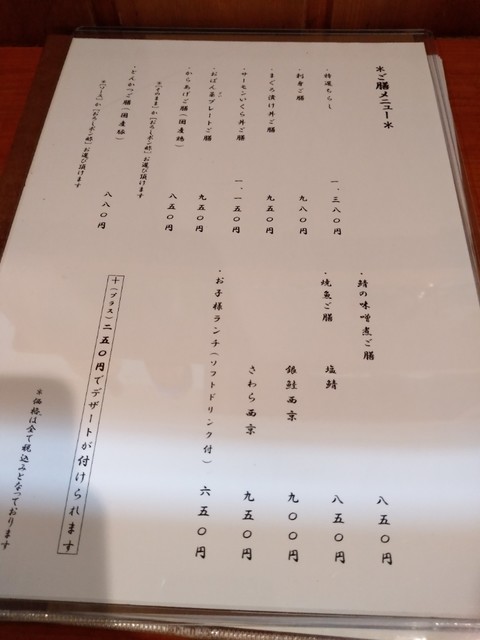 ※ご膳メニュー※
・特選ちらし 一、三八〇円
・刺身ご膳 九八〇円
・まぐろ漬け丼ご膳 九五〇円
・サーモンいくら丼ご膳 一、一五〇円
・おばん菜プレートご膳 九五〇円
・からあげご膳（国産鶏） 八五〇円
※「そのまま」か「おろしポン酢」お選び頂けます
・とんかつご膳（国産豚） 八八〇円
※「ソース」か「おろしポン酢」お選び頂けます
・鯖の味噌煮ご膳 八五〇円
・焼魚ご膳 塩鯖 八五〇円
銀鮭西京 九〇〇円
さわら西京 九五〇円
・お子様ランチ（ソフトドリンク付） 六五〇円
＋（プラス）二五〇円でデザートが付けられます
※価格は全て税込みとなっております